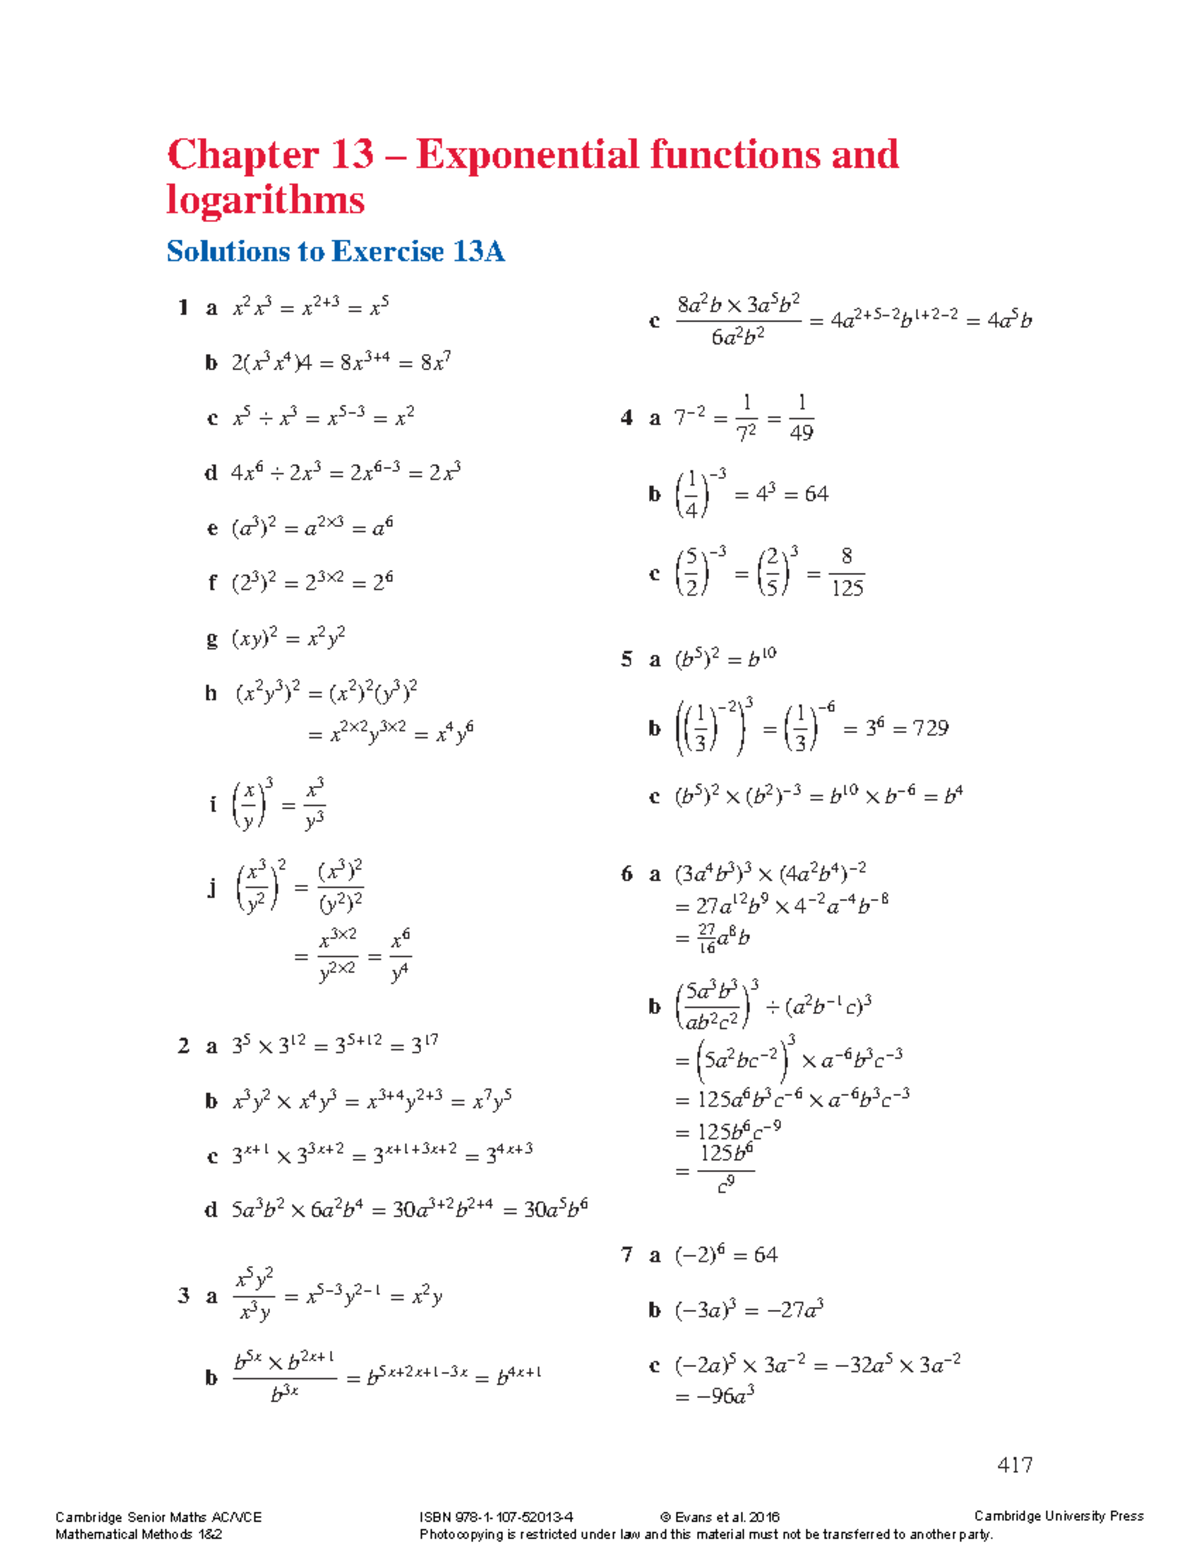 Chapter 13 – Exponential functions and
logarithms
Solutions to Exercise 13A
1 a x²x³ = x²⁺³ = x⁵
b 2(x³x⁴)4 = 8x³⁺⁴ = 8x⁷
c x⁵ ÷ x³ = x⁵⁻³ = x²
d 4x⁶ ÷ 2x³ = 2x⁶⁻³ = 2x³
e (a³)² = a²ˣ³ = a⁶
f (2³)² = 2³ˣ² = 2⁶
g (xy)² = x²y²
h (x²y³)² = (x²)²(y³)²
= x²ˣ²y³ˣ² = x⁴y⁶
i (x/y)³ = x³/y³
j (x³/y²)² = (x³)²/(y²)²
= x³ˣ²/y²ˣ² = x⁶/y⁴
2 a 3⁵ × 3¹² = 3⁵⁺¹² = 3¹⁷
b x³y² × x⁴y³ = x³⁺⁴y²⁺³ = x⁷y⁵
c 3^(x+1) × 3^(3x+2) = 3^(x+1+3x+2) = 3^(4x+3)
d 5a³b² × 6a²b⁴ = 30a³⁺²b²⁺⁴ = 30a⁵b⁶
3 a x⁵y²/x³y = x⁵⁻³y²⁻¹ = x²y
b b^(5x) × b^(2x+1)/b^(3x) = b^(5x+2x+1−3x) = b^(4x+1)
c 8a²b × 3a⁵b²/6a²b² = 4a²⁺⁵⁻²b¹⁺²⁻² = 4a⁵b
4 a 7⁻² = 1/7² = 1/49
b (1/4)⁻³ = 4³ = 64
c (5/2)⁻³ = (2/5)³ = 8/125
5 a (b⁵)² = b¹⁰
b ((1/3)⁻²)³ = (1/3)⁻⁶ = 3⁶ = 729
c (b⁵)² × (b²)⁻³ = b¹⁰ × b⁻⁶ = b⁴
6 a (3a⁴b³)³ × (4a²b⁴)⁻²
= 27a¹²b⁹ × 4⁻²a⁻⁴b⁻⁸
= 27/16 a⁸b
b (5a³b³/ab²c²)³ ÷ (a²b⁻¹c)³
= (5a²bc⁻²)³ × a⁻⁶b³c⁻³
= 125a⁶b³c⁻⁶ × a⁻⁶b³c⁻³
= 125b⁶c⁻⁹
= 125b⁶/c⁹
7 a (−2)⁶ = 64
b (−3a)³ = −27a³
c (−2a)⁵ × 3a⁻² = −32a⁵ × 3a⁻²
= −96a³
417
Cambridge Senior Maths AC/VCE
Mathematical Methods 1&2
ISBN 978-1-107-52013-4 © Evans et al. 2016 Cambridge University Press
Photocopying is restricted under law and this material must not be transferred to another party.